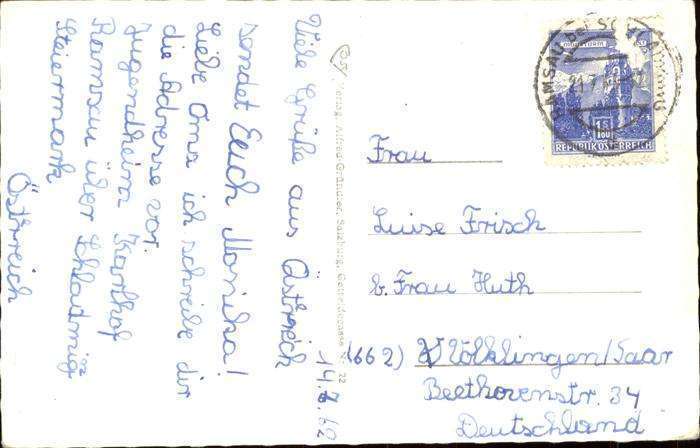 Viele Grüße aus Östrreich
sendet Euch Monika!
Liebe Oma ich schreibe dir
die Adresse vor.
Jugendheim Karlhof
Ramsau über Schladmig
Steiermark
Österreich
14.7.62
Verlag Alfred Gründler, Salzburg, 22
RAMSAU bei SCHLADMING
REPUBLIK ÖSTERREICH
Frau
Luise Frisch
b. Frau Huth
(662) Völklingen/Saar
Beethovenstr. 34
Deutschland